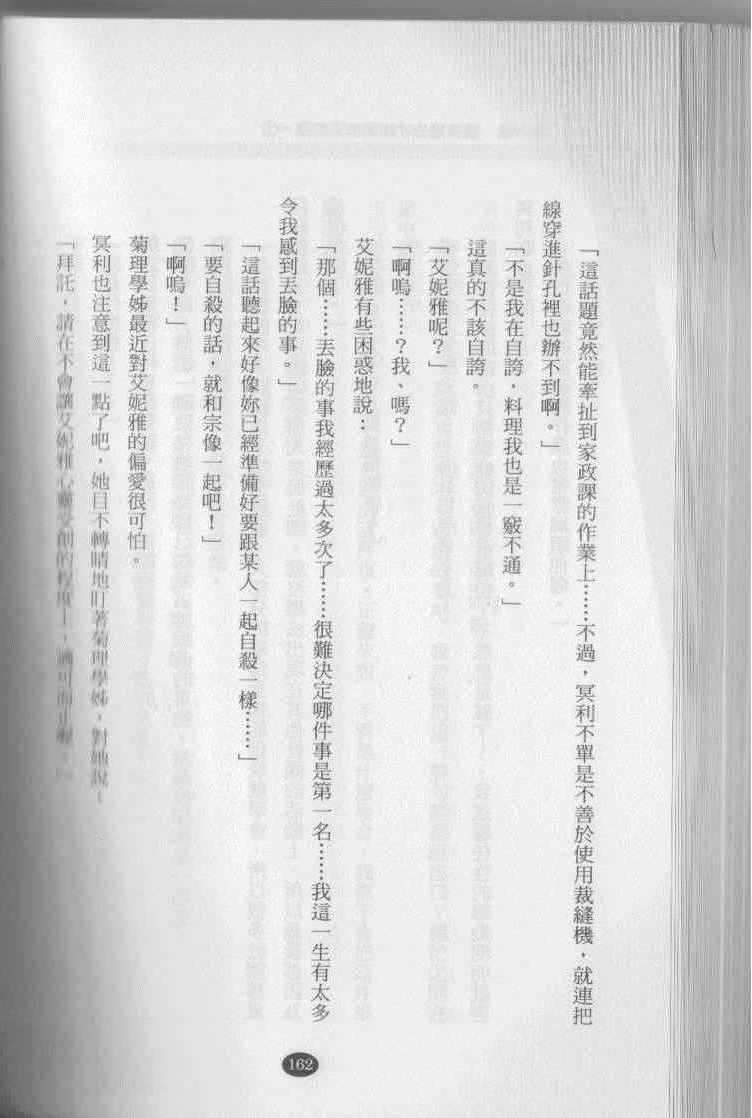 「這話題竟然能牽扯到家政課的作業上……不過，冥利不單是不善於使用裁縫機，就連把
線穿進針孔裡也辦不到啊。」
「不是我在自誇，料理我也是一竅不通。」
這真的不該自誇。
「艾妮雅呢？」
「啊嗚……？我、嗎？」
艾妮雅有些困惑地說：
「那個……丟臉的事我經歷過太多次了……很難決定哪件事是第一名……我這一生有太多
令我感到丟臉的事。」
「這話聽起來好像妳已經準備好要跟某人一起自殺一樣……」
「要自殺的話，就和宗像一起吧！」
「啊嗚！」
菊理學姊最近對艾妮雅的偏愛很可怕。
冥利也注意到這一點了吧，她目不轉睛地盯著菊理學姊，對她說：
「拜託，請在不會讓艾妮雅心靈受創的程度，適可而止喔。」
162